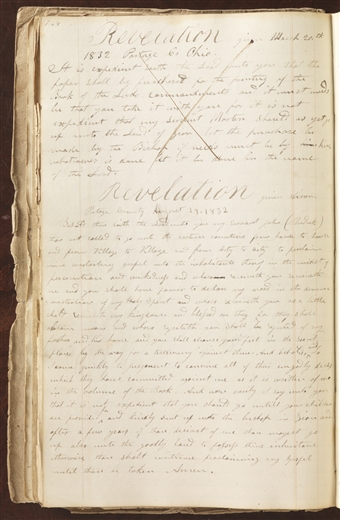 Revelation given March 20th
1832 Portage Co Ohio
It is expedient saith the Lord unto you that the
paper shall be purchased for the printing of the
Book of the Lords commandments and it must needs
be that you take it with you for it is not
expedient that my servant Martin should as yet go
up unto the Land of Zion let the purchase be
made by the Bishop if needs must be by
is done let it be done in the name
of the Lord.
Revelation given
August 29. 1832
thus saith the unto you my servant John
go unto the from house to house
and from Village to Village and from City to City to proclaim
my everlasting gospel unto the inhabitants thereof in the midst of
persecution and wickedness and who receiveth you receiveth
me and you shall have power to declare my word in the
demonstration of my Holy Spirit and whoso receiveth you as a little
child receiveth my kingdom and blessed are they for they shall
obtain mercy and whoso rejecteth you shall be rejected of my
father and his house and you shall cleanse your feet in the secret
places by the way for a testimony against them And behold I
come quickly to judgement to convince all of their ungodly deeds
which they have committed against me as it is written of me
in the volume of the Book And now verily I say unto you
that it is not expedient that you should go until your children
are provided for and kindly sent up unto the bishop in Zion and
after a few years if thou desirest of me thou mayest go
up also unto the goodly land to possess thine inheritance
otherwise thou shalt continue proclaiming my gospel
until thou be taken Amen.